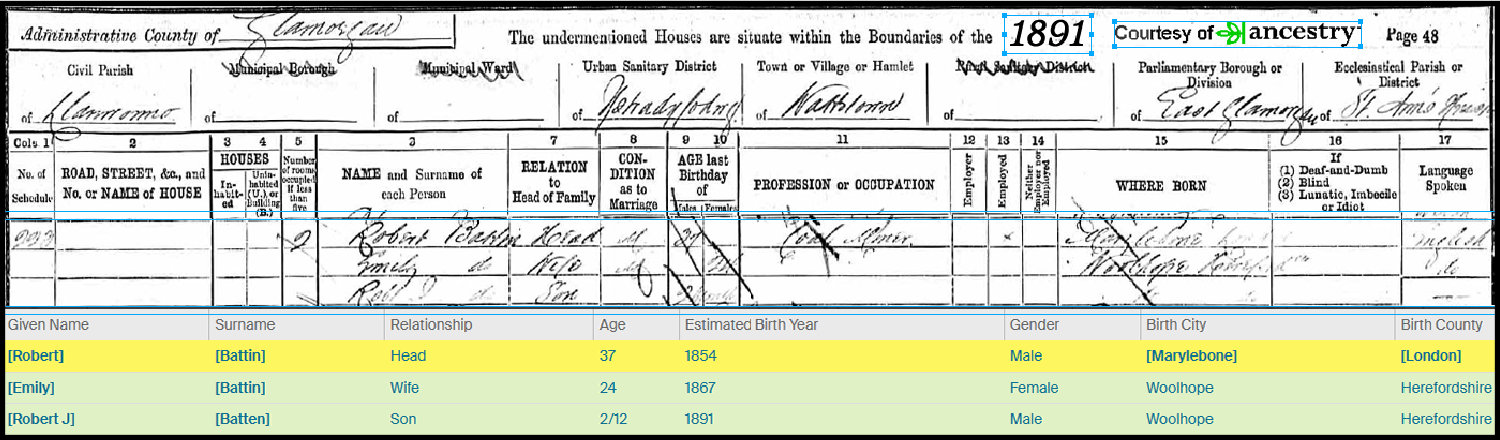 Administrative County of Glamorgan The undermentioned Houses are situate within the Boundaries of the 1891 Courtesy of ancestry Page 48
Civil Parish Municipal Borough Municipal Ward Urban Sanitary District Town or Village or Hamlet Rural Sanitary District Parliamentary Borough or Division Ecclesiastical Parish or District
of of of of of Wattstown of of East Glamorgan of
Cols 1 2 3 4 5 6 7 8 9 10 11 12 13 14 15 16 17
No. of Schedule ROAD, STREET, &c., and No. or NAME of HOUSE HOUSES Inhabited Uninhabited (U.), or Building (B.) Number of rooms occupied if less than five NAME and Surname of each Person RELATION to Head of Family CONDITION as to Marriage AGE last Birthday of Males Females PROFESSION or OCCUPATION Employer Employed Neither Employer nor Employed WHERE BORN If (1) Deaf-and-Dumb (2) Blind (3) Lunatic, Imbecile or Idiot Language Spoken
2 Robert Battin Head M 37 Coal Miner x Marylebone English
Emily do Wife M Woolhope do
Robt J do Son
Given Name Surname Relationship Age Estimated Birth Year Gender Birth City Birth County
[Robert] [Battin] Head 37 1854 Male [Marylebone] [London]
[Emily] [Battin] Wife 24 1867 Female Woolhope Herefordshire
[Robert J] [Batten] Son 2/12 1891 Male Woolhope Herefordshire